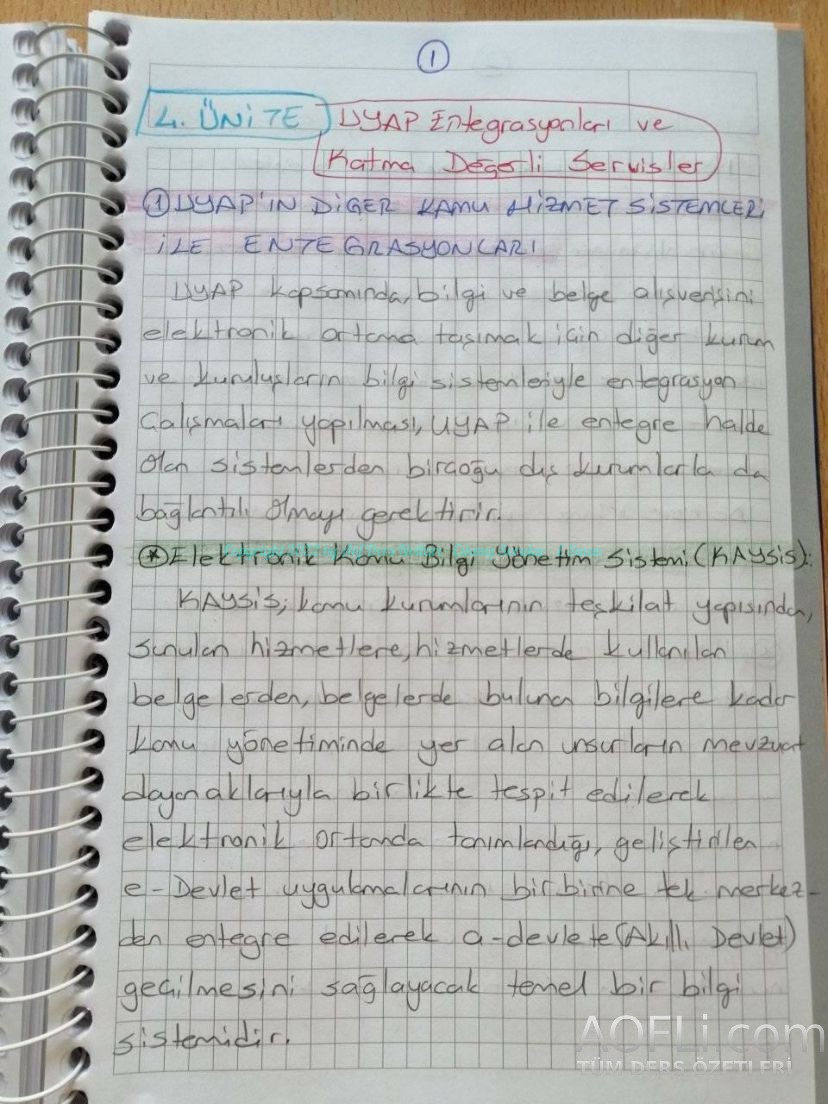 1
4. ÜNİTE UYAP Entegrasyonları ve
Katma Değerli Servisler
① UYAP'IN DİĞER KAMU HİZMET SİSTEMLERİ
İLE ENTEGRASYONLARI
UYAP kapsamında, bilgi ve belge alışverişini
elektronik ortama taşımak için diğer kurum
ve kuruluşların bilgi sistemleriyle entegrasyon
Çalışmaları yapılması, UYAP ile entegre halde
olan sistemlerden birçoğu dış kurumlarla da
bağlantılı olmayı gerektirir.
* Elektronik Kamu Bilgi Yönetim Sistemi (KAYSİS):
KAYSİS; kamu kurumlarının teşkilat yapısından,
sunulan hizmetlere, hizmetlerde kullanılan
belgelerden, belgelerde bulunan bilgilere kadar
kamu yönetiminde yer alan unsurların mevzuat
dayanaklarıyla birlikte tespit edilerek
elektronik ortamda tanımlandığı, geliştirilen
e-Devlet uygulamalarının birbirine tek merkez-
den entegre edilerek a-devlete (Akıllı Devlet)
geçilmesini sağlayacak temel bir bilgi
sistemidir.
AOFLi.com
TÜM DERS ÖZETLERİ